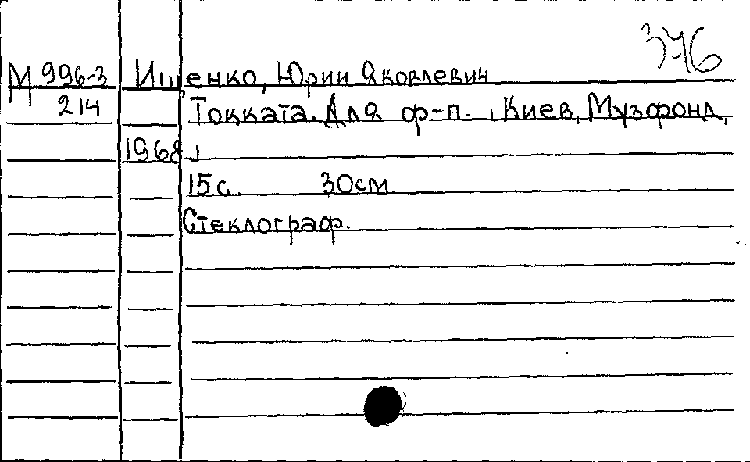 376
М 996-3 Ищенко, Юрий Яковлевич
214 Токката. Для ф-п. Киев, Музфонд,
1968
15 с. 30 см
Стеклограф.